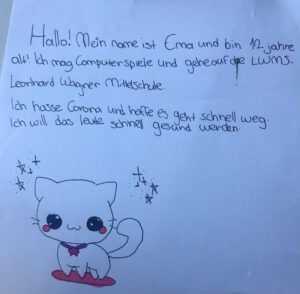 Hallo! Mein name ist Ema und bin 12 jahre
alt! Ich mag Computerspiele und gehe auf die LWMS.
Leonhard Wagner Mittelschule.
Ich hasse Corona und hoffe es geht schnell weg.
Ich will das leute schnell gesund werden.